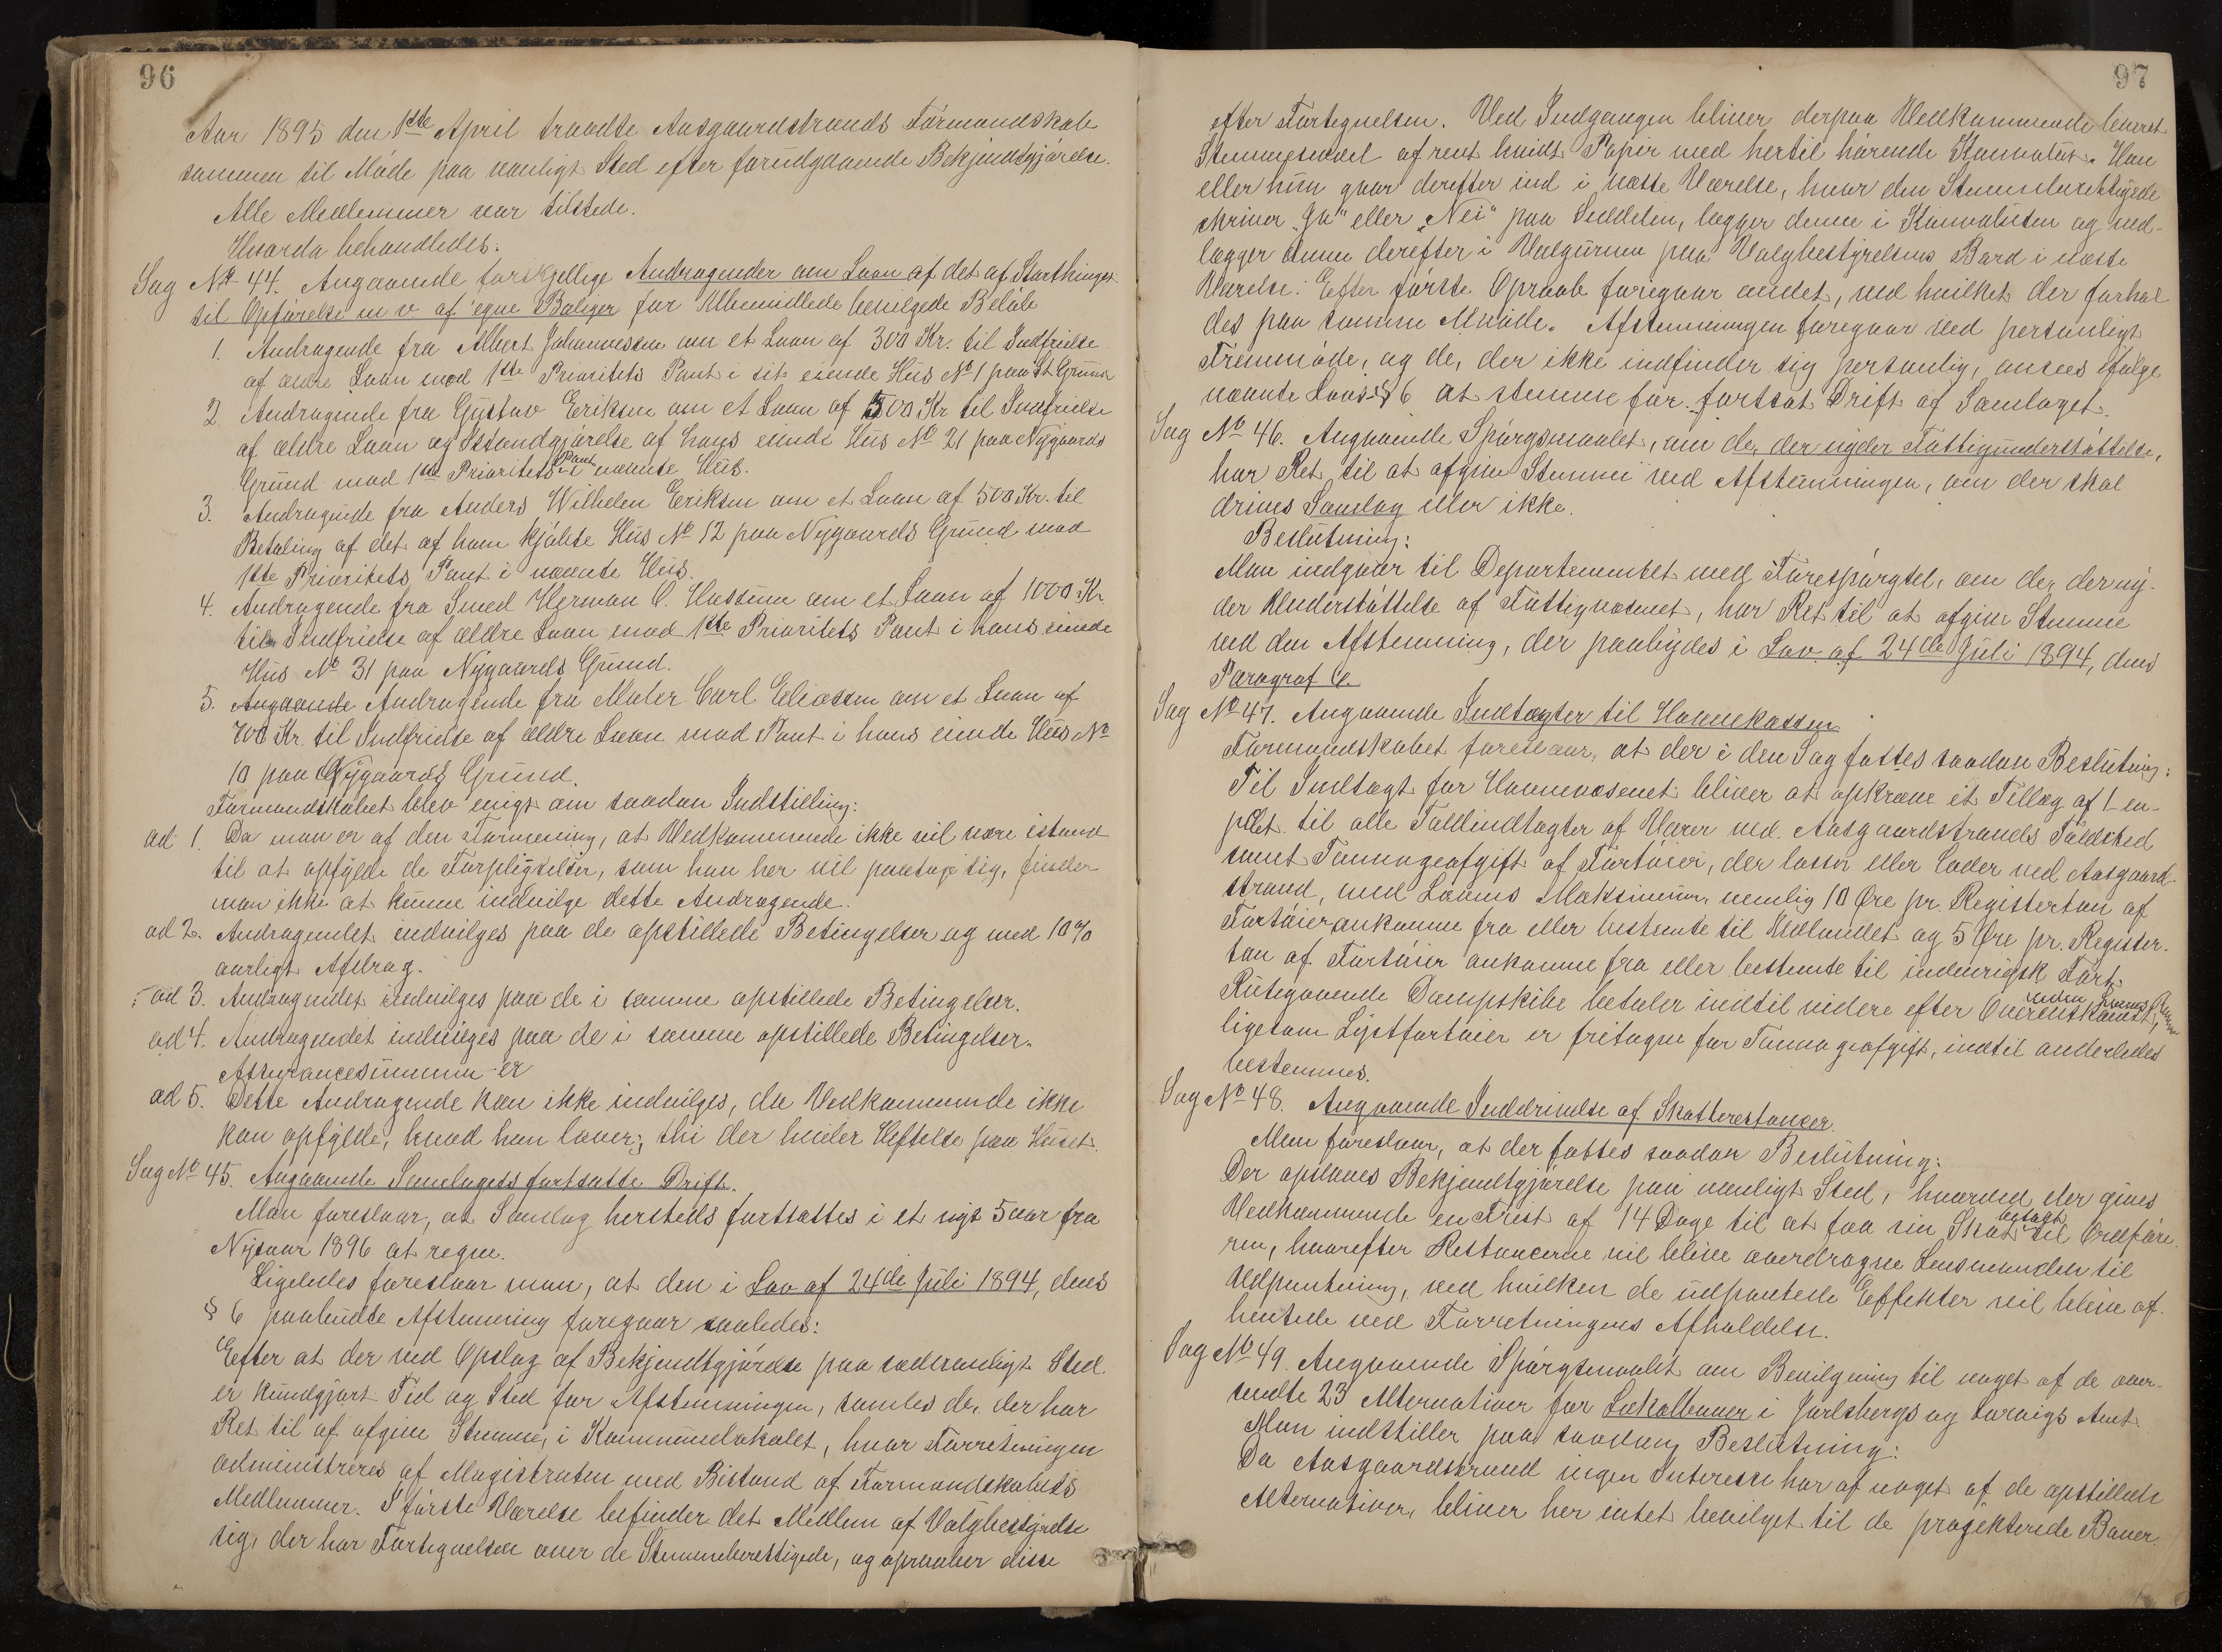 96
Aar 1895 den 1ste April traadte Aasgaardstrands Formandskab
sammen til Møde paa vanligt Sted efter forudgaaende Bekjendtgjørelse.
Alle Medlemmer var tilstede.
Hvorda behandledes:
Sag No 44. Angaaende forskjellige Andragender om Laan af det af Storthinget
til Opførelse m v af egne Boliger for Ubemidlede bevilgede Beløb
1. Andragende fra Albert Johannessen om et Laan af 300 Kr. til Indfrielse
af ældre Laan mod 1ste Prioritets Pant i sit eiende Hus No 1 paa St. Grund
2. Andragende fra Gustav Eriksen om et Laan af 500 Kr til Indfrielse
af ældre Laan og Istandgjørelse af hans eiende Hus No 21 paa Nygaards
Grund mod 1ste Prioritets Pant i nævnte Hus.
3. Andragende fra Anders Wilhelm Eriksen om et Laan af 500 Kr. til
Betaling af det af ham kjøbte Hus No 12 paa Nygaards Grund mod
1ste Prioritets Pant i nævnte Hus.
4. Andragende fra Smed Herman O. Hassum om et Laan af 1000 Kr
til Indfrielse af ældre Laan mod 1ste Prioritets Pant i hans eiende
Hus No 31 paa Nygaards Grund.
5. Angaaende Andragende fra Maler Carl Eliassen om et Laan af
700 Kr. til Indfrielse af ældre Laan mod Pant i hans eiende Hus No
10 paa Nygaards Grund.
Formandskabet blev enigt om saadan Indstilling:
ad 1. Da man er af den Formening, at Vedkommende ikke vil være istand
til at opfylde de Forpligtelser, som han her vil paatage sig, finder
man ikke at kunne indvilge dette Andragende.
ad 2. Andragendet indvilges paa de opstillede Betingelser og med 10%
aarligt Afdrag.
ad 3. Andragendet indvilges paa de i samme opstillede Betingelser.
ad 4. Andragendet indvilges paa de i samme opstillede Betingelser.
Assurancesummen er
ad 5. Dette Andragende kan ikke indvilges, da Vedkommende ikke
kan opfylde, hvad han lover; thi der hviler Heftelse paa Huset.
Sag No 45. Angaaende Samlagets fortsatte Drift.
Man foreslaar, at Samlag hersteds fortsættes i et nyt 5 aar fra
Nytaar 1896 at regne.
Ligeledes foreslaar man, at den i Lov af 24de Juli 1894, dens
§ 6 paabudte Afstemning foregaar saaledes:
Efter at der ved Opslag af Bekjendtgjørelse paa sædvanligt Sted
er kundgjort Tid og Sted for Afstemningen, samles de, der har
Ret til af afgive Stemme, i Kommunelokalet, hvor Forretningen
administreres af Magistraten med Bistand af Formandskabets
Medlemmer. I første Værelse befinder det Medlem af Valgbestyrelse
sig, der har Fortegnelsen over de Stemmeberettigede, og opraaber disse
97
efter Fortegnelsen. Ved Indgangen bliver derpaa Vedkommende leveret
Stemmeseddel af rent hvidt Papir med hertil hørende Konvolut. Han
eller hun gaar derefter ind i næste Værelse, hvor den Stemmeberettigede
skriver "Ja" eller "Nei" paa Seddelen, lægger denne i Konvoluten og ned-
lægger denne derefter i Valgurnen paa Valgbestyrelsens Bord i næste
Værelse. Efter første Opraab foregaar andet, ved hvilket der forhol
des paa samme Maade. Afstemningen foregaar ved personligt
Fremmøde, og de, der ikke indfinder sig personlig, ansees ifølge
nævnte Lovs § 6 at stemme for fortsat Drift af Samlaget.
Sag No 46. Angaaende Spørgsmaalet, om de, der nyder Fattigunderstøttelse,
har Ret til at afgive Stemme ved Afstemningen, om der skal
drives Samlag eller ikke.
Beslutning:
Man indgaar til Departementet med Forespørgsel, om de, der ny-
der Understøttelse af Fattigvæsenet, har Ret til at afgive Stemme
ved den Afstemning, der paabydes i Lov af 24de Juli 1894, dens
Paragraf 6.
Sag No 47. Angaaende Indtægter til Havnekassen
Formandskabet foreslaar, at der i den Sag fattes saadan Beslutning:
Til Indtægt for Havnevæsenet bliver at opkræve et Tillæg af 1 en-
pdct. til alle Toldindtægter af Varer ved Aasgaardstrands Toldsted
samt Tonnageafgift af Fartøier, der losser eller lader ved Aasgaard-
strand, med Lovens Maksimum, nemlig 10 Øre pr. Registerton af
Fartøier ankomne fra eller bestemte til Udlandet og 5 Øre pr. Register-
ton af Fartøier ankomne fra eller bestemte til indenrigsk Fart.
Rutegaaende Dampskibe betaler indtil videre efter Overenskomst,
ligesom Lystfartøier er fritagne for Tonnageafgift, indtil anderledes
bestemmes.
Sag No 48. Angaaende Inddrivelse af Skatterestancer.
Man foreslaar, at der fattes saadan Beslutning:
Der opslaaes Bekjendtgjørelse paa vanligt Sted, hvorved der gives
Vedkommende en Frist af 14 Dage til at faa sin Skat betalt til Ordføre
ren, hvorefter Restancerne vil blive overdragne Lensmanden til
Udpantning, ved hvilken de udpantede Effekter vil blive af-
hentede ved Forretningens Afholdelse.
Sag No 49. Angaaende Spørgsmaalet om Bevilgning til noget af de over-
sendte 23 Alternativer for Lokalbaner i Jarlsbergs og Larviks Amt.
Man indstiller paa saadan Beslutning:
Da Aasgaardstrand ingen Interesse har af noget af de opstillede
Alternativer, bliver her intet bevilget til de projekterede Baner.